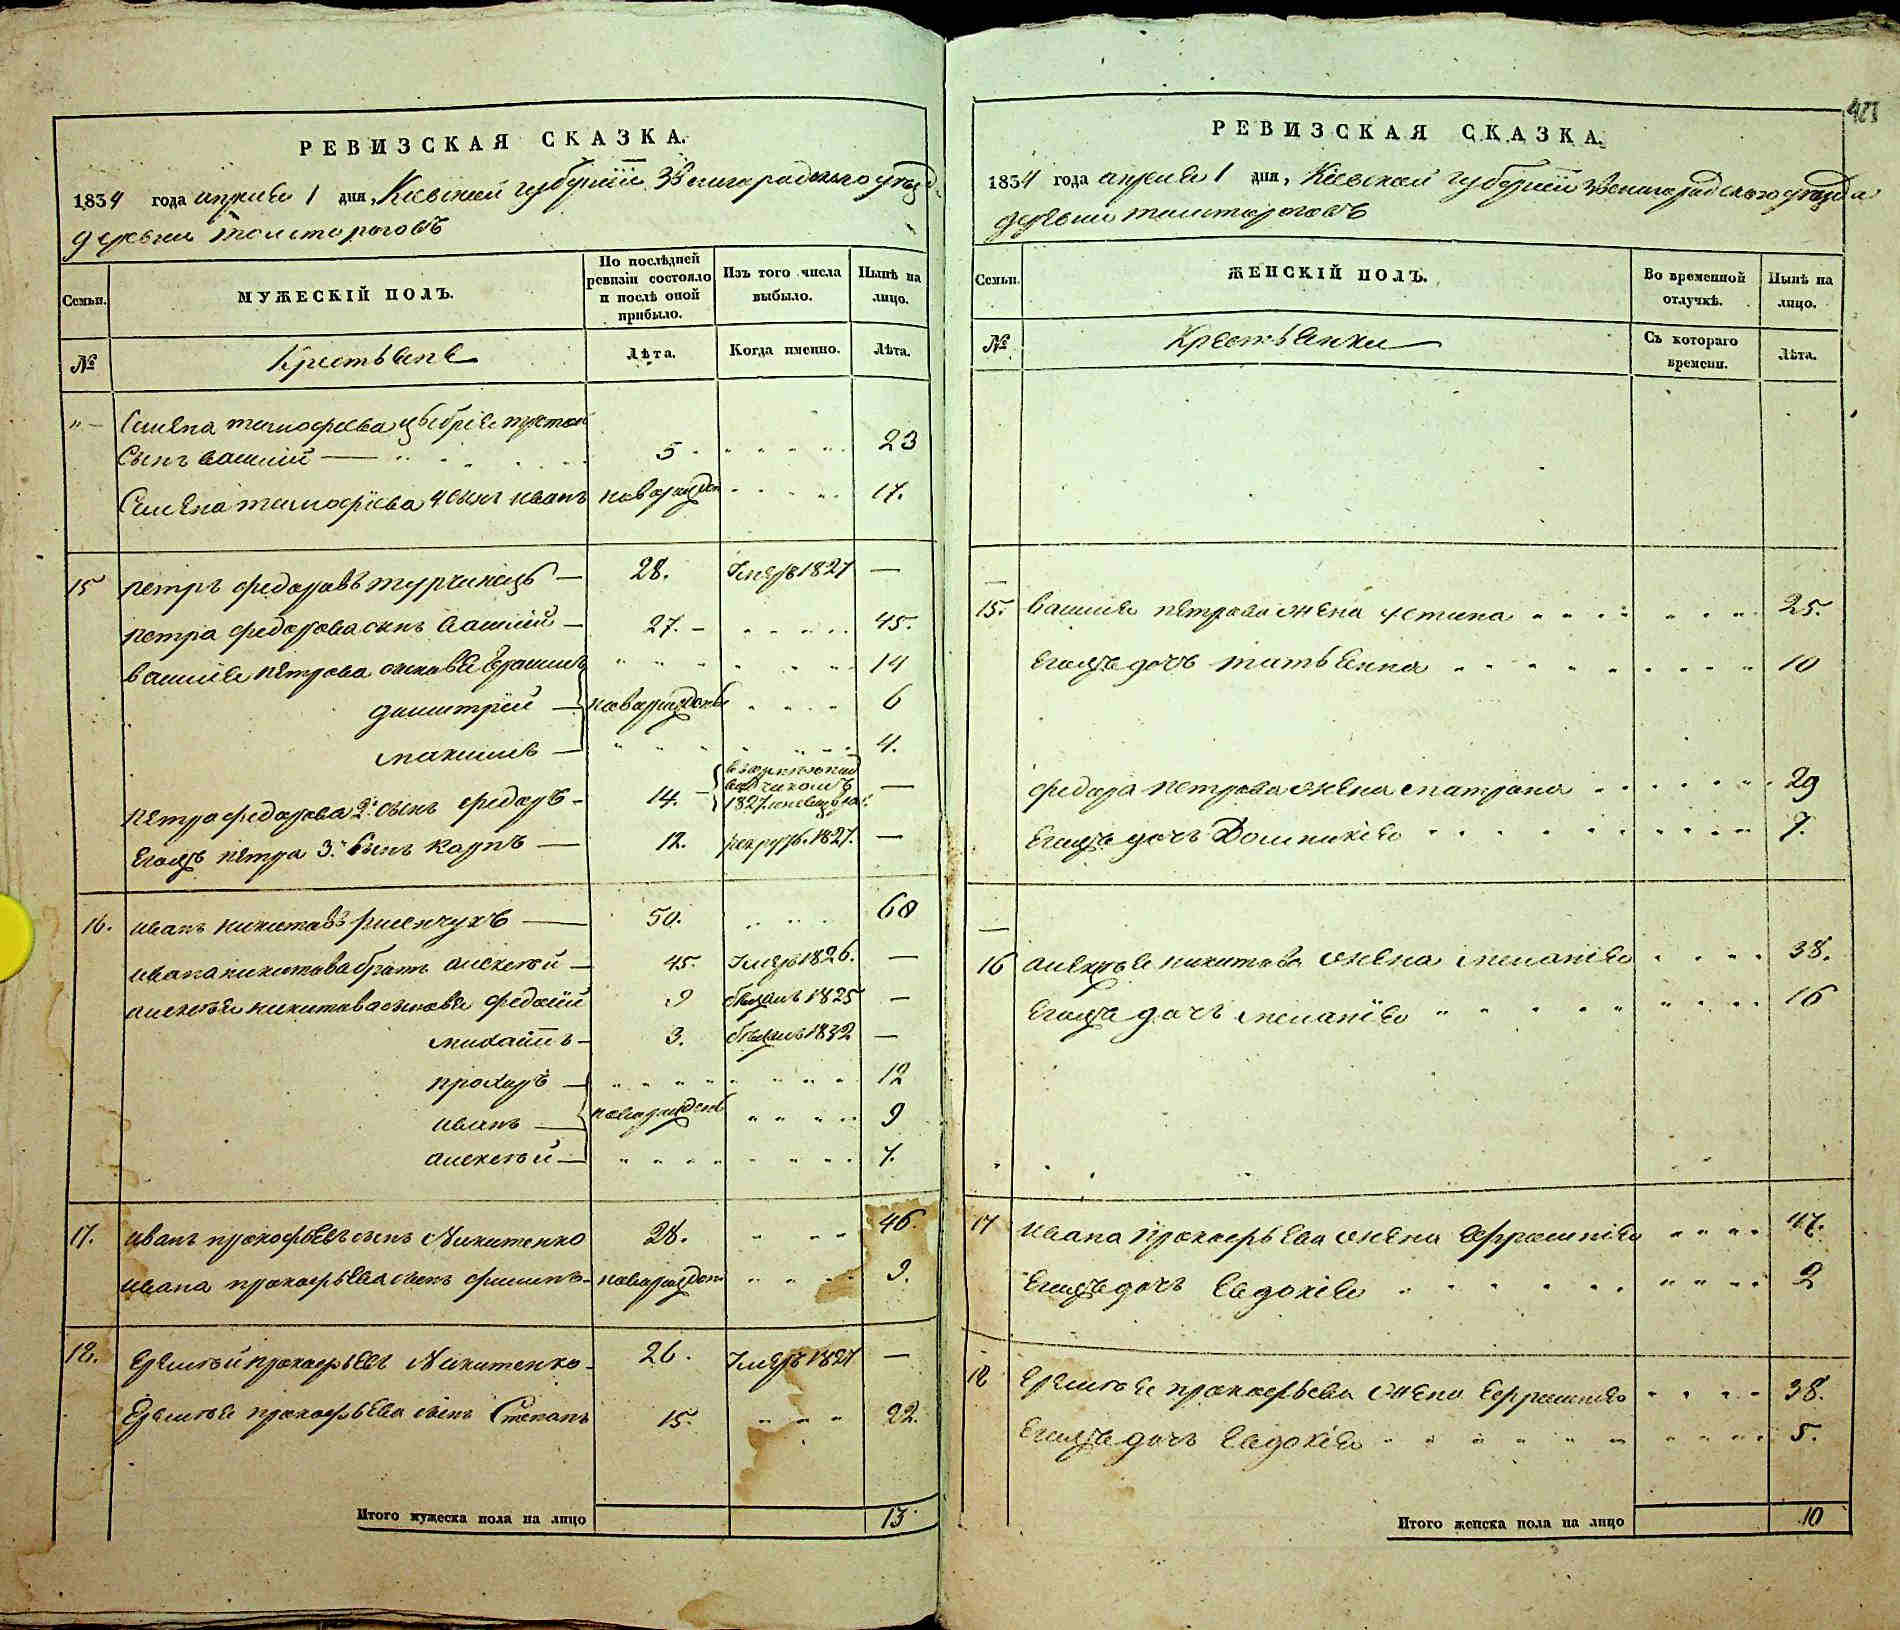 РЕВИЗСКАЯ СКАЗКА.
1834 года апреля 1 дня, Киевской губернии Звенигородского уезда
деревни Толсторогов
Семьи.
МУЖЕСКІЙ ПОЛЪ.
По послѣдней ревизіи состояло и послѣ оной прибыло.
Изъ того числа выбыло.
Нынѣ на лицо.
№
Крестьяне
Лѣта.
Когда именно.
Лѣта.
Семена тимофеева
сынъ василий 5 23
Семена тимофеева 4 сынъ иванъ новорожден 17.
15 петръ федоровъ турчинецъ — 28. Умеръ 1827 —
петра федорова сынъ василий — 27. — 45.
василия петрова сыновья 14
димитрий — новорожденые 6
максимъ — 4.
петра федорова 2й сынъ федоръ — 14. 1827 —
Егожъ петра 3й сынъ карпъ — 12. рекрут. 1827. —
16. иванъ никитавъ — 50. 60
ивана никитова братъ алексей — 45. Умеръ 1826. —
алексея никитова сыновья федосий 9 1825 —
михаилъ — 3. 1832 —
прохоръ — 12
иванъ — новорожден 9
алексей — 7.
17. иванъ прокофьевъ сынъ Никитенко 28. 46.
ивана прокофьева сынъ филипъ — новорожден 9.
18. еремей прокофьевъ Никитенко — 26. Умеръ 1827 —
Еремея прокофьева сынъ Степанъ 15. 22.
Итого мужеска пола на лицо 13
423
РЕВИЗСКАЯ СКАЗКА.
1834 года апреля 1 дня, Киевской губернии Звенигородского уезда
деревни толсторогов
Семьи.
ЖЕНСКІЙ ПОЛЪ.
Во временной отлучкѣ.
Нынѣ на лицо.
№
Крестьянки
Съ котораго времени.
Лѣта.
15. василия петрова жена устина 25.
Егожъ дочь татьянна 10
федора петрова жена матрона 29
Егожъ дочь Домникия 7.
16 алексея никитова жена мелания 38.
Егожъ дочь мелания 16
17 ивана прокофьева жена Ефросиния 47.
Егожъ дочь Евдокия 2
18 еремея прокофьева жена Ефросиния 38.
Егожъ дочь Евдокия 5.
Итого женска пола на лицо 10